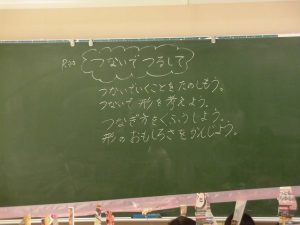 つないで つるして
つないでいくことを たのしもう。
つないで 形を 考えよう。
つなぎ方を くふうしよう。
形の おもしろさを かんじよう。